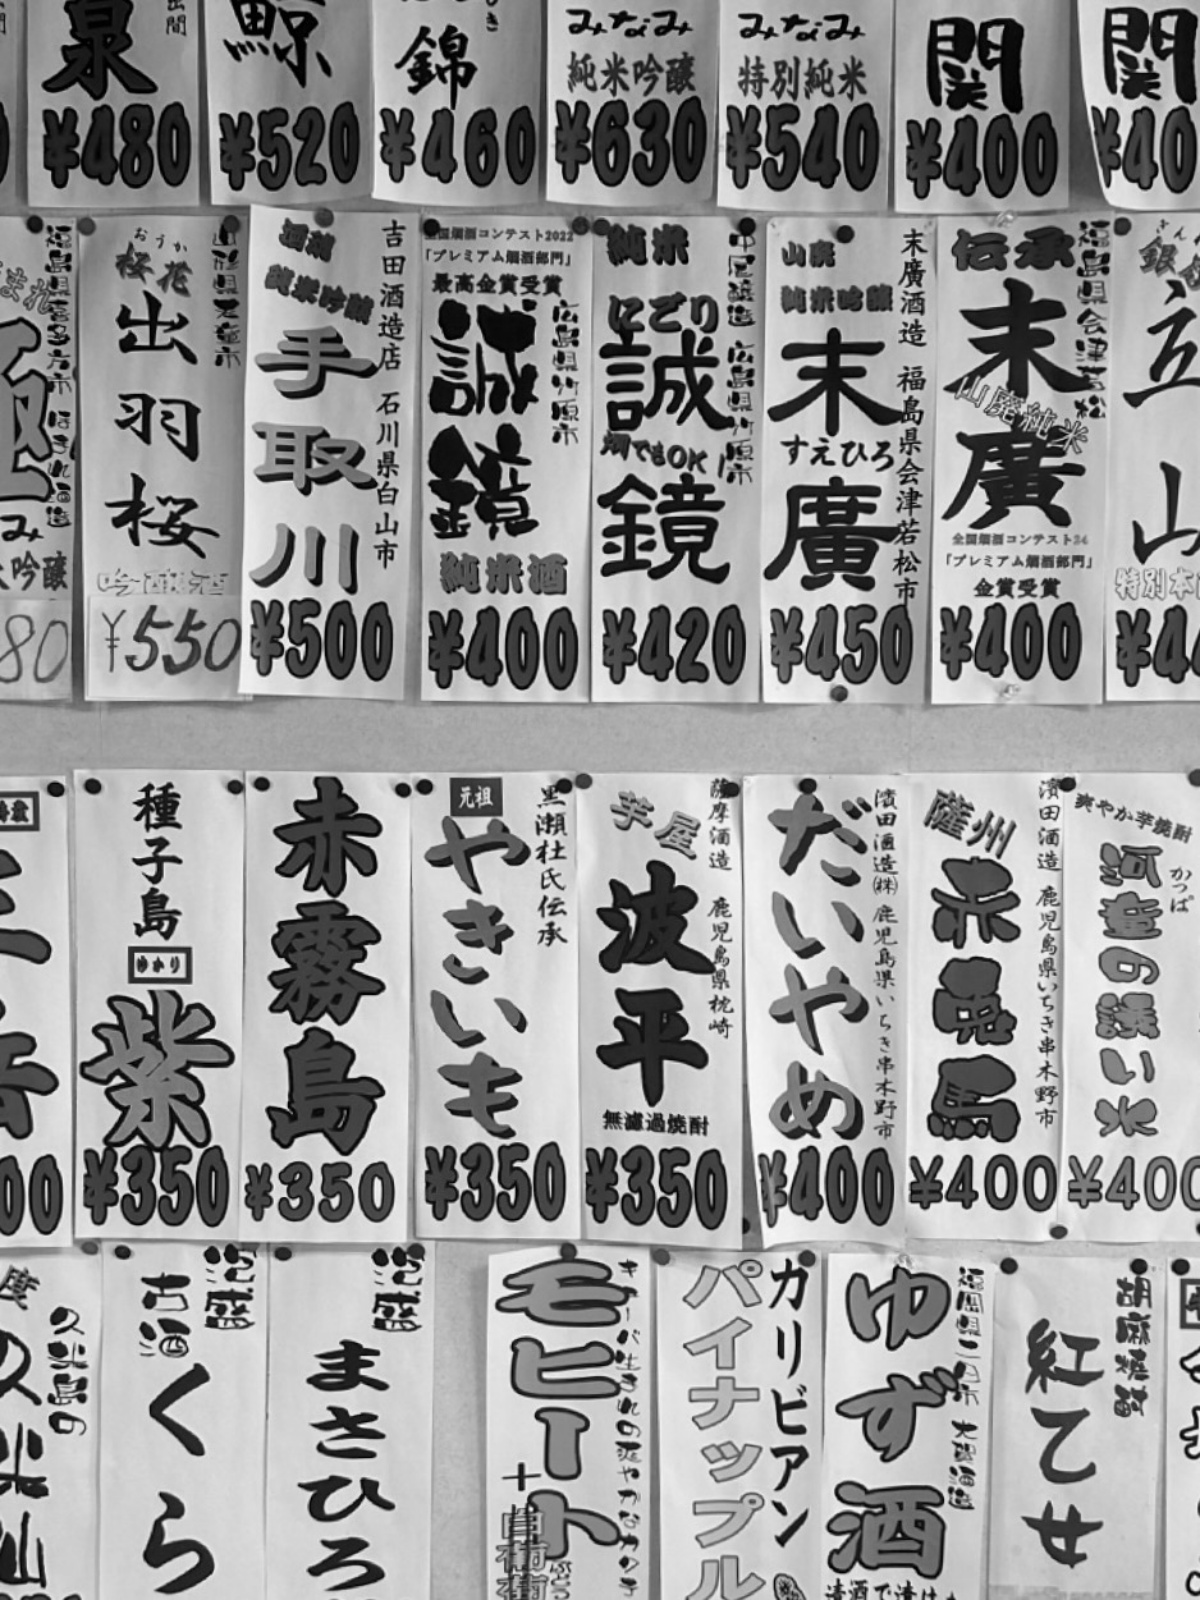 泉
¥480
鯨
¥520
錦
¥460
みなみ
純米吟醸
¥630
みなみ
特別純米
¥540
関
¥400
関
¥40
吟醸
80
おうか
桜花
出羽桜
山形県天童市
吟醸酒
¥550
酒魂
純米吟醸
手取川
吉田酒造店 石川県白山市
¥500
全国燗酒コンテスト2022
「プレミアム燗酒部門」
最高金賞受賞
誠鏡
広島県竹原市
純米酒
¥400
純米
にごり
誠鏡
燗でもOK
中尾醸造 広島県竹原市
¥420
山廃
純米吟醸
末廣
すえひろ
末廣酒造 福島県会津若松市
¥450
伝承
末廣
山廃純米
福島県会津若松
全国燗酒コンテスト34
「プレミアム燗酒部門」
金賞受賞
¥400
立山
¥44
00
種子島
ゆかり
紫
¥350
赤霧島
¥350
元祖
やきいも
黒瀬杜氏伝承
¥350
芋屋
波平
薩摩酒造 鹿児島県枕崎
無濾過焼酎
¥350
だいやめ
濵田酒造㈱ 鹿児島県いちき串木野市
¥400
薩州
赤兎馬
濵田酒造 鹿児島県いちき串木野市
¥400
爽やか芋焼酎
かっぱ
河童の誘い水
¥400
久米島の
久米仙
泡盛
古酒
くら
泡盛
まさひろ
モヒート
+
カリビアン
パイナップル
ゆず酒
胡麻焼酎
紅乙女